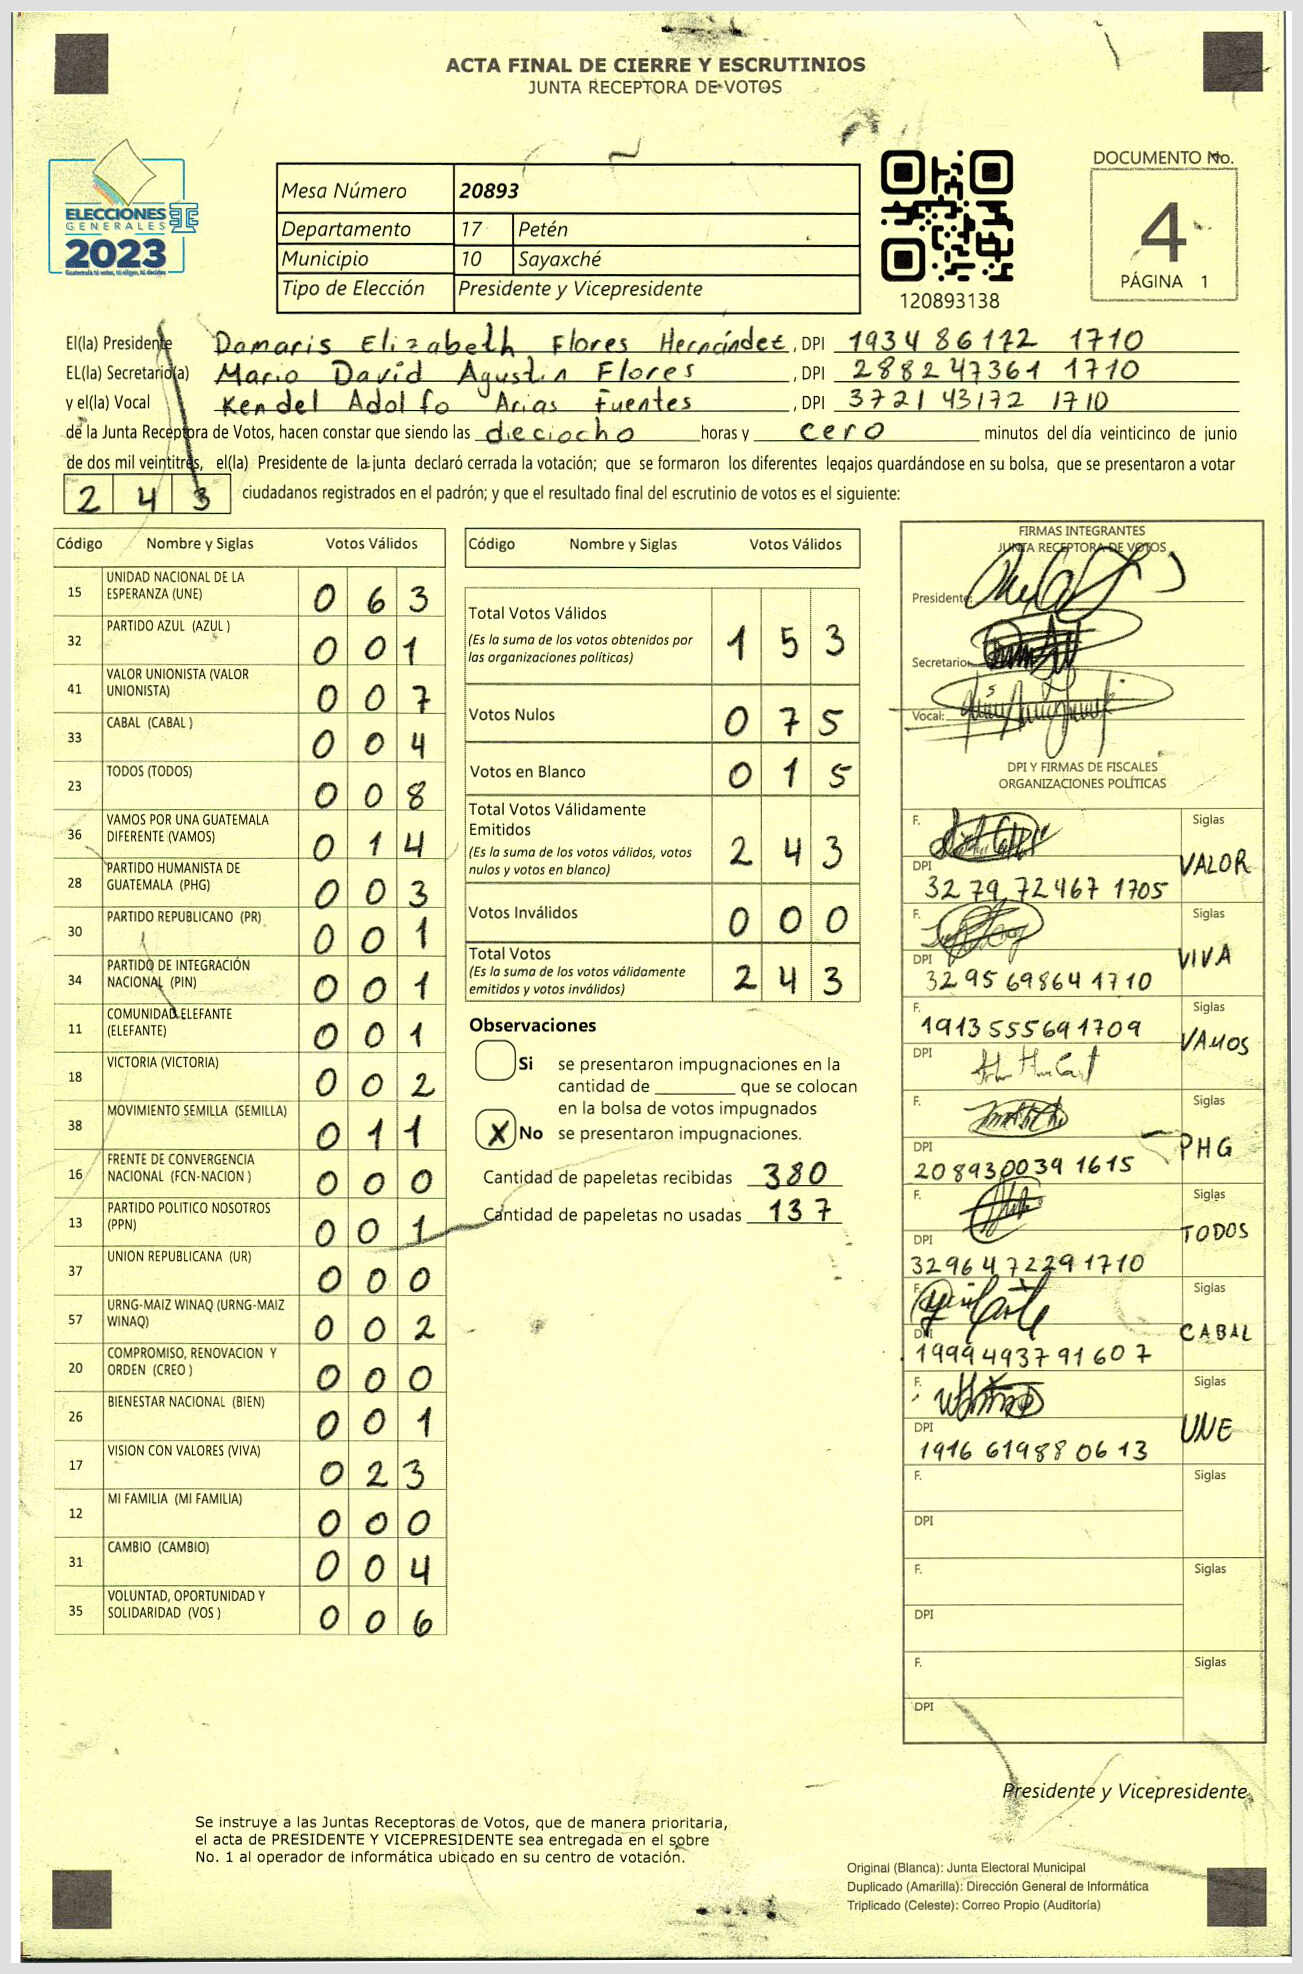 ACTA FINAL DE CIERRE Y ESCRUTINIOS
JUNTA RECEPTORA DE VOTOS
ELECCIONES
GENERALES
2023
Mesa Número 20893
Departamento 17 Petén
Municipio 10 Sayaxché
Tipo de Elección Presidente y Vicepresidente
120893138
DOCUMENTO No.
4
PÁGINA 1
El(la) Presidente Damaris Elizabeth Flores Hernández, DPI 1934 86172 1710
EL(la) Secretario(a) Mario David Agustin Flores, DPI 2882 47361 1710
y el(la) Vocal Kendel Adolfo Arias Fuentes, DPI 3721 43172 1710
de la Junta Receptora de Votos, hacen constar que siendo las dieciocho horas y cero minutos del día veinticinco de junio
de dos mil veintitrés, el(la) Presidente de la junta declaró cerrada la votación; que se formaron los diferentes legajos quardándose en su bolsa, que se presentaron a votar
243 ciudadanos registrados en el padrón; y que el resultado final del escrutinio de votos es el siguiente:
Código Nombre y Siglas Votos Válidos
15 UNIDAD NACIONAL DE LA ESPERANZA (UNE) 063
32 PARTIDO AZUL (AZUL ) 001
41 VALOR UNIONISTA (VALOR UNIONISTA) 007
33 CABAL (CABAL ) 004
23 TODOS (TODOS) 008
36 VAMOS POR UNA GUATEMALA DIFERENTE (VAMOS) 014
28 PARTIDO HUMANISTA DE GUATEMALA (PHG) 003
30 PARTIDO REPUBLICANO (PR) 001
34 PARTIDO DE INTEGRACIÓN NACIONAL (PIN) 001
11 COMUNIDAD ELEFANTE (ELEFANTE) 001
18 VICTORIA (VICTORIA) 002
38 MOVIMIENTO SEMILLA (SEMILLA) 011
16 FRENTE DE CONVERGENCIA NACIONAL (FCN-NACION ) 000
13 PARTIDO POLITICO NOSOTROS (PPN) 001
37 UNION REPUBLICANA (UR) 000
57 URNG-MAIZ WINAQ (URNG-MAIZ WINAQ) 002
20 COMPROMISO, RENOVACION Y ORDEN (CREO ) 000
26 BIENESTAR NACIONAL (BIEN) 001
17 VISION CON VALORES (VIVA) 023
12 MI FAMILIA (MI FAMILIA) 000
31 CAMBIO (CAMBIO) 004
35 VOLUNTAD, OPORTUNIDAD Y SOLIDARIDAD (VOS ) 006
Código Nombre y Siglas Votos Válidos
Total Votos Válidos 153
(Es la suma de los votos obtenidos por
las organizaciones políticas)
Votos Nulos 075
Votos en Blanco 015
Total Votos Válidamente
Emitidos 243
(Es la suma de los votos válidos, votos
nulos y votos en blanco)
Votos Inválidos 000
Total Votos 243
(Es la suma de los votos válidamente
emitidos y votos inválidos)
Observaciones
Si se presentaron impugnaciones en la
cantidad de ________ que se colocan
en la bolsa de votos impugnados
X No se presentaron impugnaciones.
Cantidad de papeletas recibidas 380
Cantidad de papeletas no usadas 137
FIRMAS INTEGRANTES
JUNTA RECEPTORA DE VOTOS
Presidente:
Secretario:
Vocal:
DPI Y FIRMAS DE FISCALES
ORGANIZACIONES POLÍTICAS
F. Siglas
DPI 3279 72467 1705 VALOR
F. Siglas
DPI 3295 69864 1710 VIVA
F. 1913555691709 Siglas
DPI VAMOS
F. Siglas
DPI 208930039 1615 PHG
F. Siglas
DPI 3296472291710 TODOS
F. Siglas
DPI 1999493791607 CABAL
F. Siglas
DPI 1916 61988 0613 UNE
F. Siglas
DPI
F. Siglas
DPI
F. Siglas
DPI
Presidente y Vicepresidente
Se instruye a las Juntas Receptoras de Votos, que de manera prioritaria,
el acta de PRESIDENTE Y VICEPRESIDENTE sea entregada en el sobre
No. 1 al operador de informática ubicado en su centro de votación.
Original (Blanca): Junta Electoral Municipal
Duplicado (Amarilla): Dirección General de Informática
Triplicado (Celeste): Correo Propio (Auditoría)